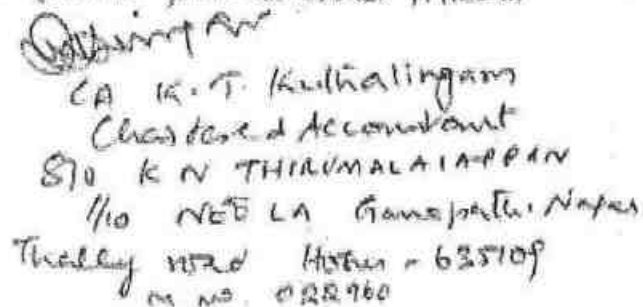 CA K. T. Kuthalingam
Chartered Accountant
S/o K N THIRUMALAIAPPAN
1/10 NEELA Ganapathi Nagar
Thally road Hosur - 635109
M NO. 022960